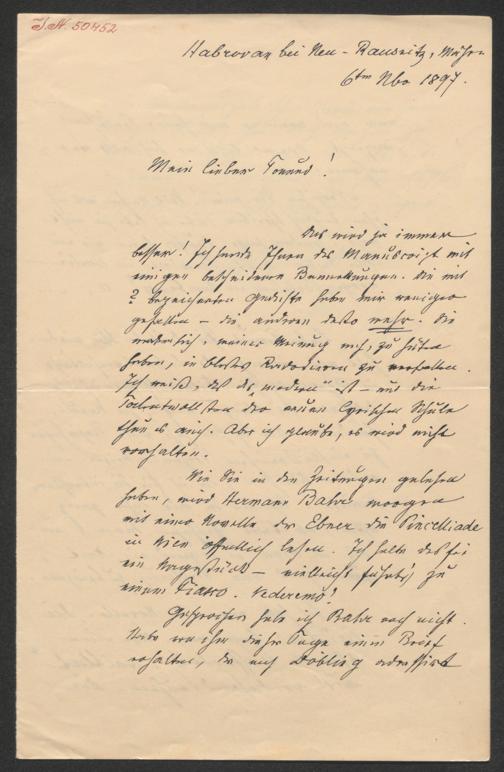 J.N. 50452
Habrovan bei Neu-Rausnitz, Mähren
6ten Nbr 1897.
Mein lieber Freund!
Das wird ja immer
besser! Ich sende Ihnen das Manuscript mit
einigen bescheidenen Bemerkungen. Die mit
? bezeichneten Gedichte haben mir weniger
gefallen – die anderen desto mehr. Sie
meiner Meinung nach, zu hüten
haben, in bloßes zu verfallen.
Ich weiß, daß das „modern" ist – und die
Talentvollsten der neuen lyrischen Schule
thun es auch. Aber ich glaube, es wird nicht
vorhalten.
Wie Sie in den Zeitungen gelesen
haben, wird Hermann Bahr morgen
mit einer Novelle der Ebner die
in Wien öffentlich lesen. Ich halte das für
ein Wagestück – vielleicht führt's zu
einem Fiasco. Vederemo!
Gesprochen habe ich Bahr noch nicht.
Habe von ihm dieser Tage einen Brief
erhalten, der nach Döbling adressirt